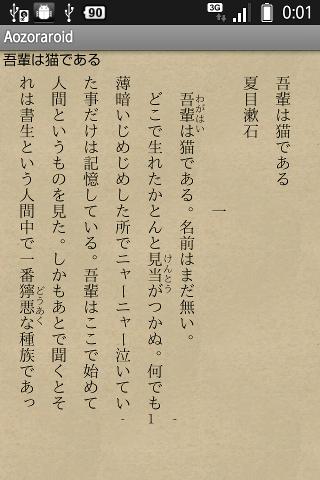 90
3G
0:01
Aozoraroid
吾輩は猫である
吾輩は猫である
夏目漱石
一
わがはい
吾輩は猫である。名前はまだ無い。
けんとう
どこで生れたかとんと見当がつかぬ。何でも
薄暗いじめじめした所でニャーニャー泣いてい
た事だけは記憶している。吾輩はここで始めて
人間というものを見た。しかもあとで聞くとそ
どうあく
れは書生という人間中で一番獰悪な種族であっ
- 1 -